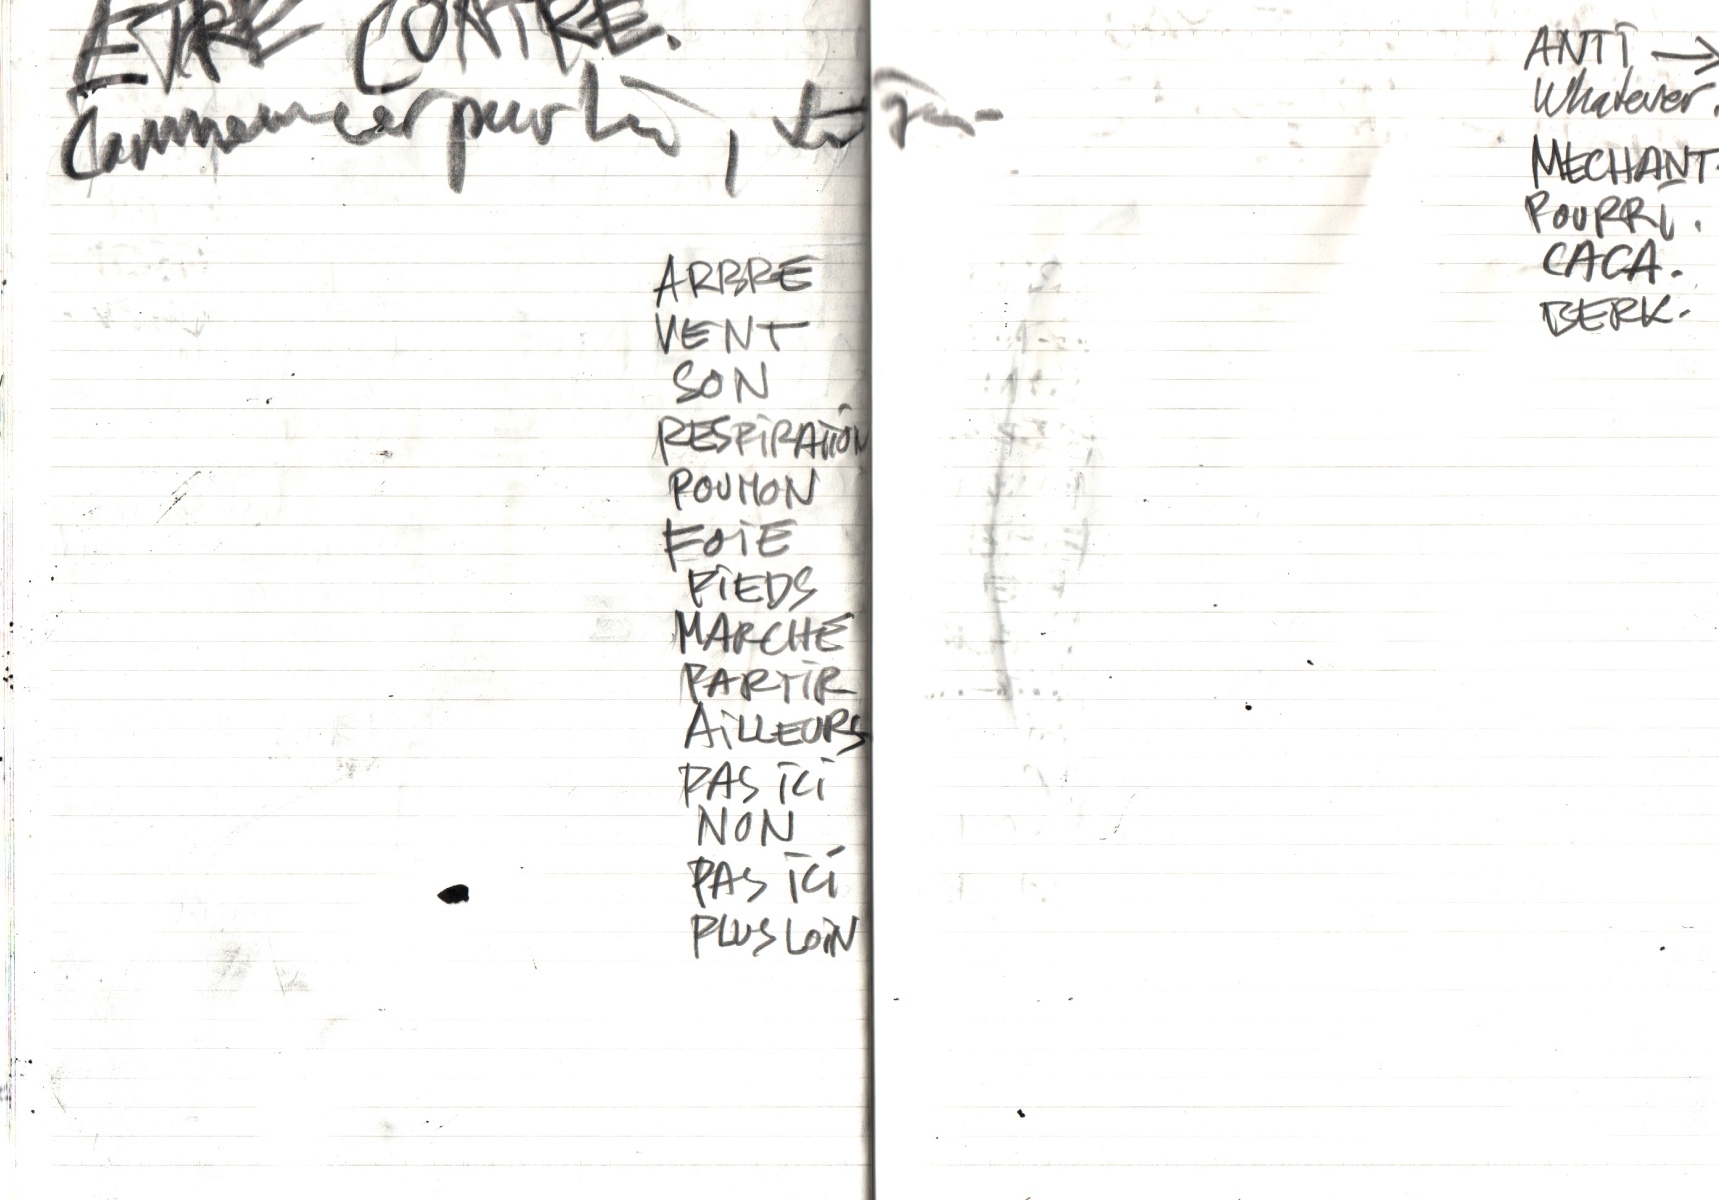 ETRE CONTRE.
Commencer par là,
ARBRE
VENT
SON
RESPIRATION
POUMON
FOIE
PIEDS
MARCHE
PARTIR
AILLEURS
PAS ICI
NON
PAS ICI
PLUS LOIN
ANTI →
Whatever.
MECHANT.
POURRI.
CACA.
BERK.